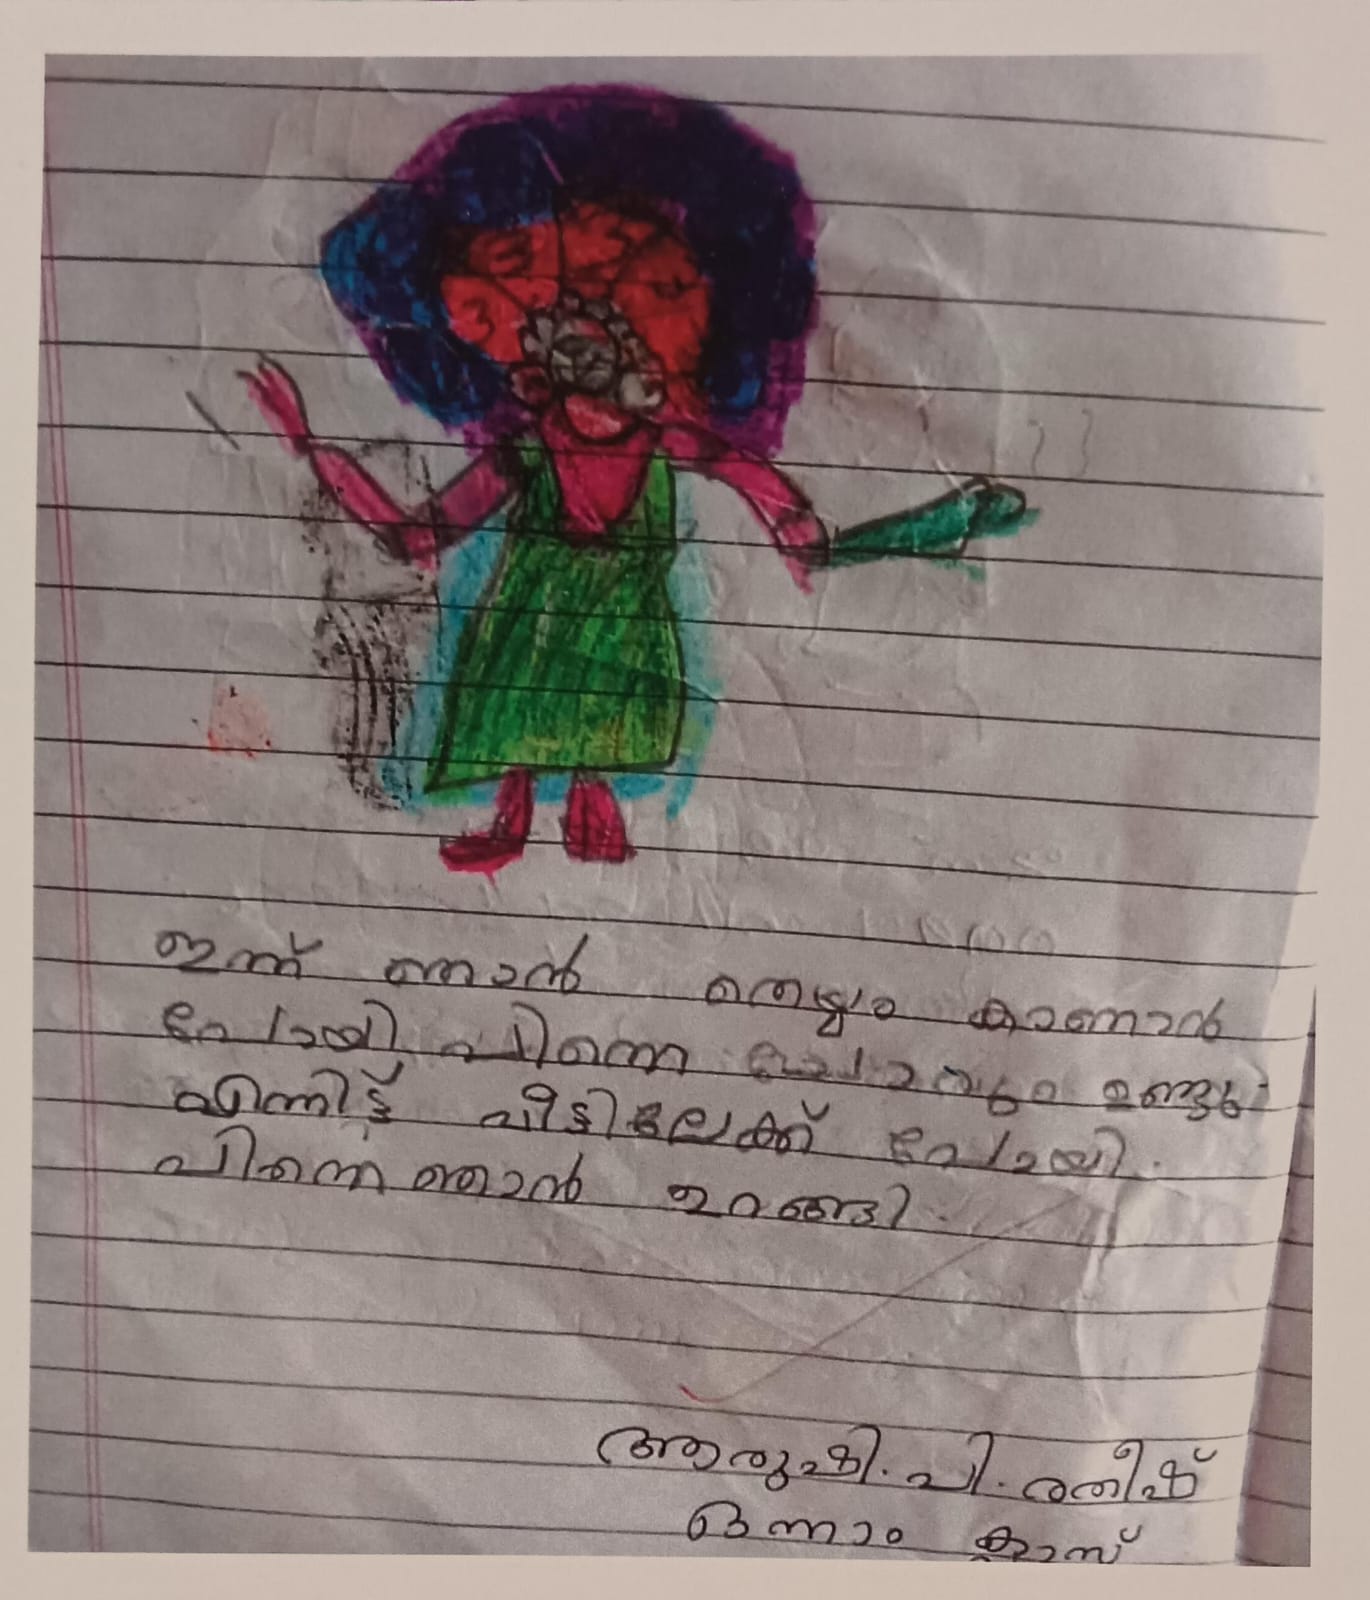 ഇന്ന് ഞാൻ തെയ്യം കാണാൻ
പോയി പിന്നെ ഉണ്ടു
എന്നിട്ട് വീട്ടിലേക്ക് പോയി.
പിന്നെ ഞാൻ ഉറങ്ങി.
ആരുഷി. പി. രതീഷ്
ഒന്നാം ക്ലാസ്